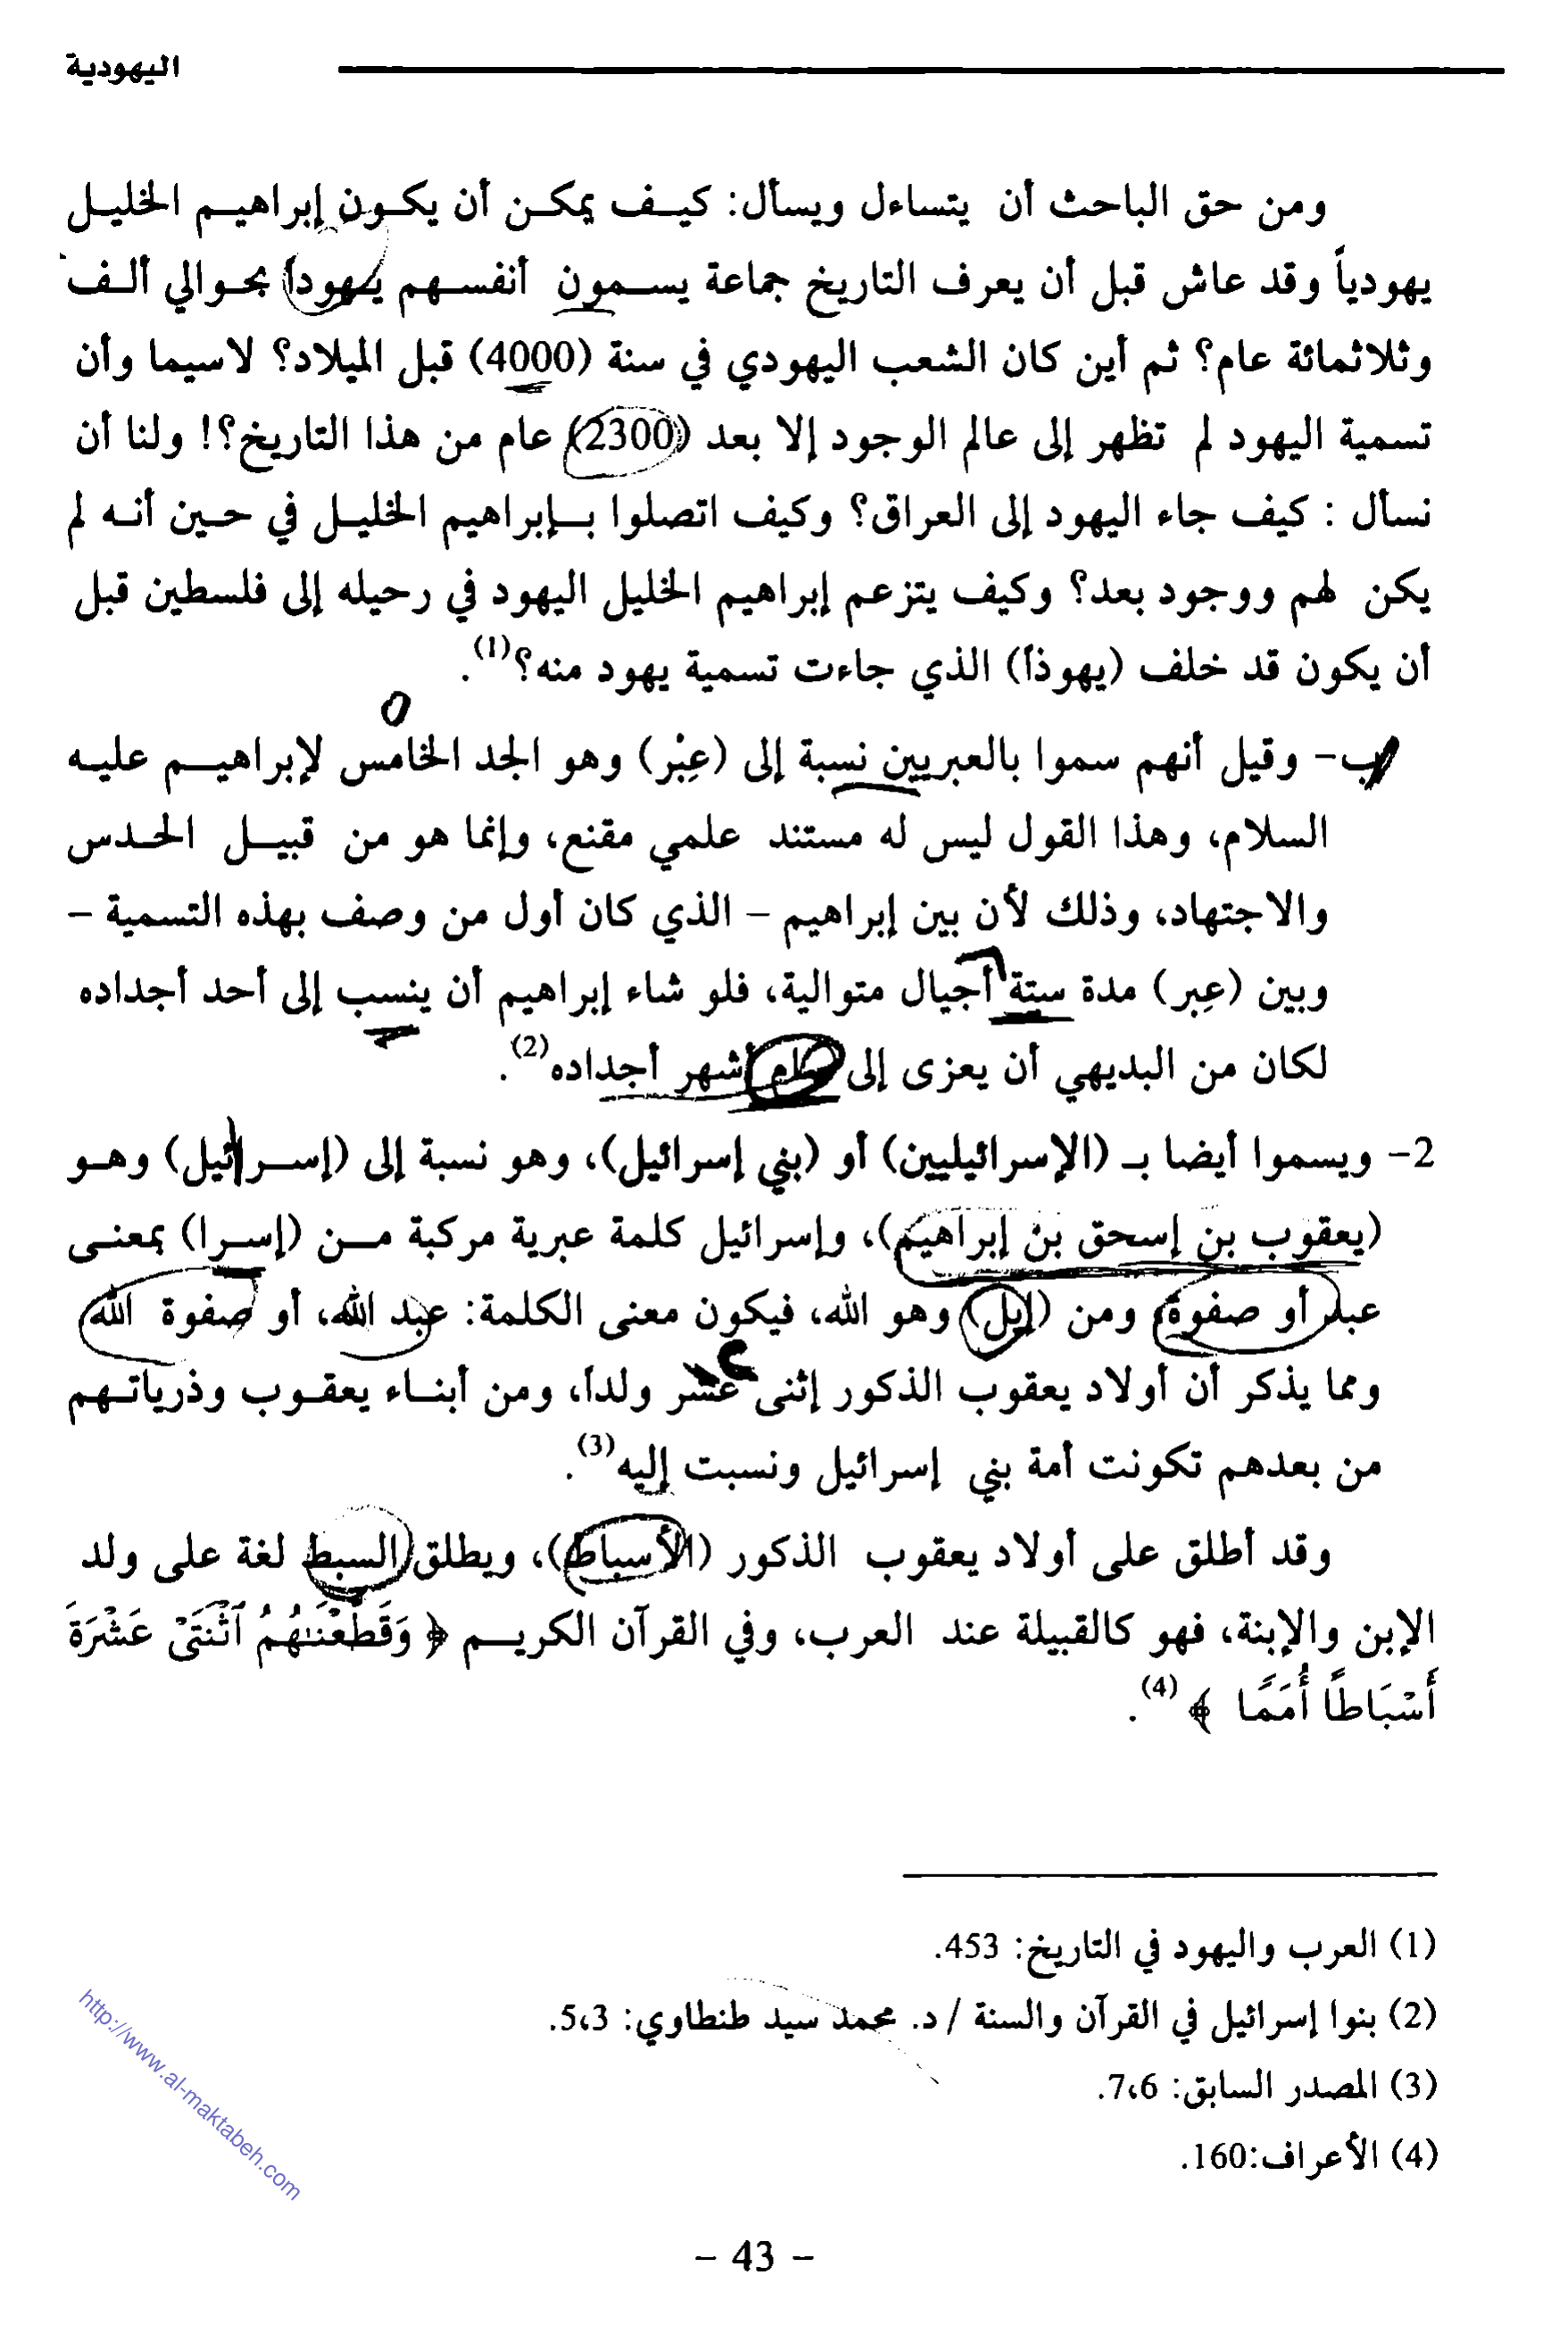 اليهودية
ومن حق الباحث أن يتساءل ويسأل: كيف يمكن أن يكون إبراهيم الخليل
يهودياً وقد عاش قبل أن يعرف التاريخ جماعة يسمون أنفسهم يهوداً بحوالي ألف
وثلاثمائة عام؟ ثم أين كان الشعب اليهودي في سنة (4000) قبل الميلاد؟ لاسيما وأن
تسمية اليهود لم تظهر إلى عالم الوجود إلا بعد (2300) عام من هذا التاريخ؟! ولنا أن
نسأل : كيف جاء اليهود إلى العراق؟ وكيف اتصلوا بإبراهيم الخليل في حين أنه لم
يكن لهم ووجود بعد؟ وكيف يتزعم إبراهيم الخليل اليهود في رحيله إلى فلسطين قبل
أن يكون قد خلف (يهوذا) الذي جاءت تسمية يهود منه؟(1).
ب- وقيل أنهم سموا بالعبريين نسبة إلى (عِبْر) وهو الجد الخامس لإبراهيم عليه
السلام، وهذا القول ليس له مستند علمي مقنع، وإنما هو من قبيل الحدس
والاجتهاد، وذلك لأن بين إبراهيم – الذي كان أول من وصف بهذه التسمية –
وبين (عِبر) مدة ستة أجيال متوالية، فلو شاء إبراهيم أن ينسب إلى أحد أجداده
لكان من البديهي أن يعزى إلى أشهر أجداده(2).
2- ويسموا أيضا بـ (الإسرائيليين) أو (بني إسرائيل)، وهو نسبة إلى (إسرائيل) وهو
(يعقوب بن إسحق بن إبراهيم)، وإسرائيل كلمة عبرية مركبة من (إسرا) بمعنى
عبد أو صفوة، ومن (إيل) وهو الله، فيكون معنى الكلمة: عبد الله، أو صفوة الله
ومما يذكر أن أولاد يعقوب الذكور إثنى عشر ولداً، ومن أبناء يعقوب وذرياتهم
من بعدهم تكونت أمة بني إسرائيل ونسبت إليه(3).
وقد أطلق على أولاد يعقوب الذكور (الأسباط)، ويطلق السبط لغة على ولد
الإبن والإبنة، فهو كالقبيلة عند العرب، وفي القرآن الكريم ﴿ وَقَطَّعْنَٰهُمُ ٱثْنَتَىْ عَشْرَةَ
أَسْبَاطًا أُمَمًا ﴾(4).
(1) العرب واليهود في التاريخ: 453.
(2) بنوا إسرائيل في القرآن والسنة / د. محمد سيد طنطاوي: 3،5.
(3) المصدر السابق: 6،7.
(4) الأعراف:160.
http://www.al-maktabeh.com
– 43 –